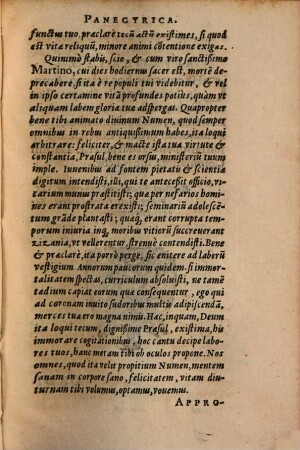 PANEGYRICA.
functus tuo, praclarè tecũ actũ existimes, si quod
est vita reliquũ, minore animi cõtentione exigas.
Quinimò stabis, scio, & cum viro sanctissimo
Martino, cui dies hodiernus sacer est, mortē de-
precabere, si ita è re populi tui videbitur, & vel
in ipso certamine vitã profundes potius, quàm vt
aliquam labem gloria tua adspergas. Quapropter
bene tibi animato diuinum Numen, quod semper
omnibus in rebus antiquissimum habes, ita loqui
arbitrare: feliciter, & macte ista tua virtute &
constantia, Prasul, bene es orsus, ministeriũ tuum
imple. Iuuenibus ad fontem pietatis & scientia
digitum intendisti, illi, qui te antecessit officio, vi-
carium munus prastitisti; qua per nefarios homi-
nes erant prostrata erexisti; seminariũ adolescē-
tum grãde plantasti; quaq́, erant corrupta tempo-
rum iniuria inq́, moribus vitiorũ succreuerant
zizania, vt vellerentur strenuè contendisti. Bene
& praclarè, ita porrò perge, sic enitere ad laborũ
vestigium. Annorum paucorum quidem si immor-
talitatem spectas, curriculum absoluisti, ne tamē
tadium capiat eorum qua consequentur, ego qui
ad coronam inuito sudoribus multis adipiscendã,
merces tua ero magna nimis. Hac, inquam, Deum
ita loqui tecum, dignißime Prasul, existima, his
immorare cogitationibus, hoc cantu decipe labo-
res tuos, hanc metam tibi ob oculos propone. Nos
omnes, quod ita velit propitium Numen, mentem
sanam in corpore sano, felicitatem, vitam diu-
turnam tibi volumus, optamus, vouemus.
APPRO-